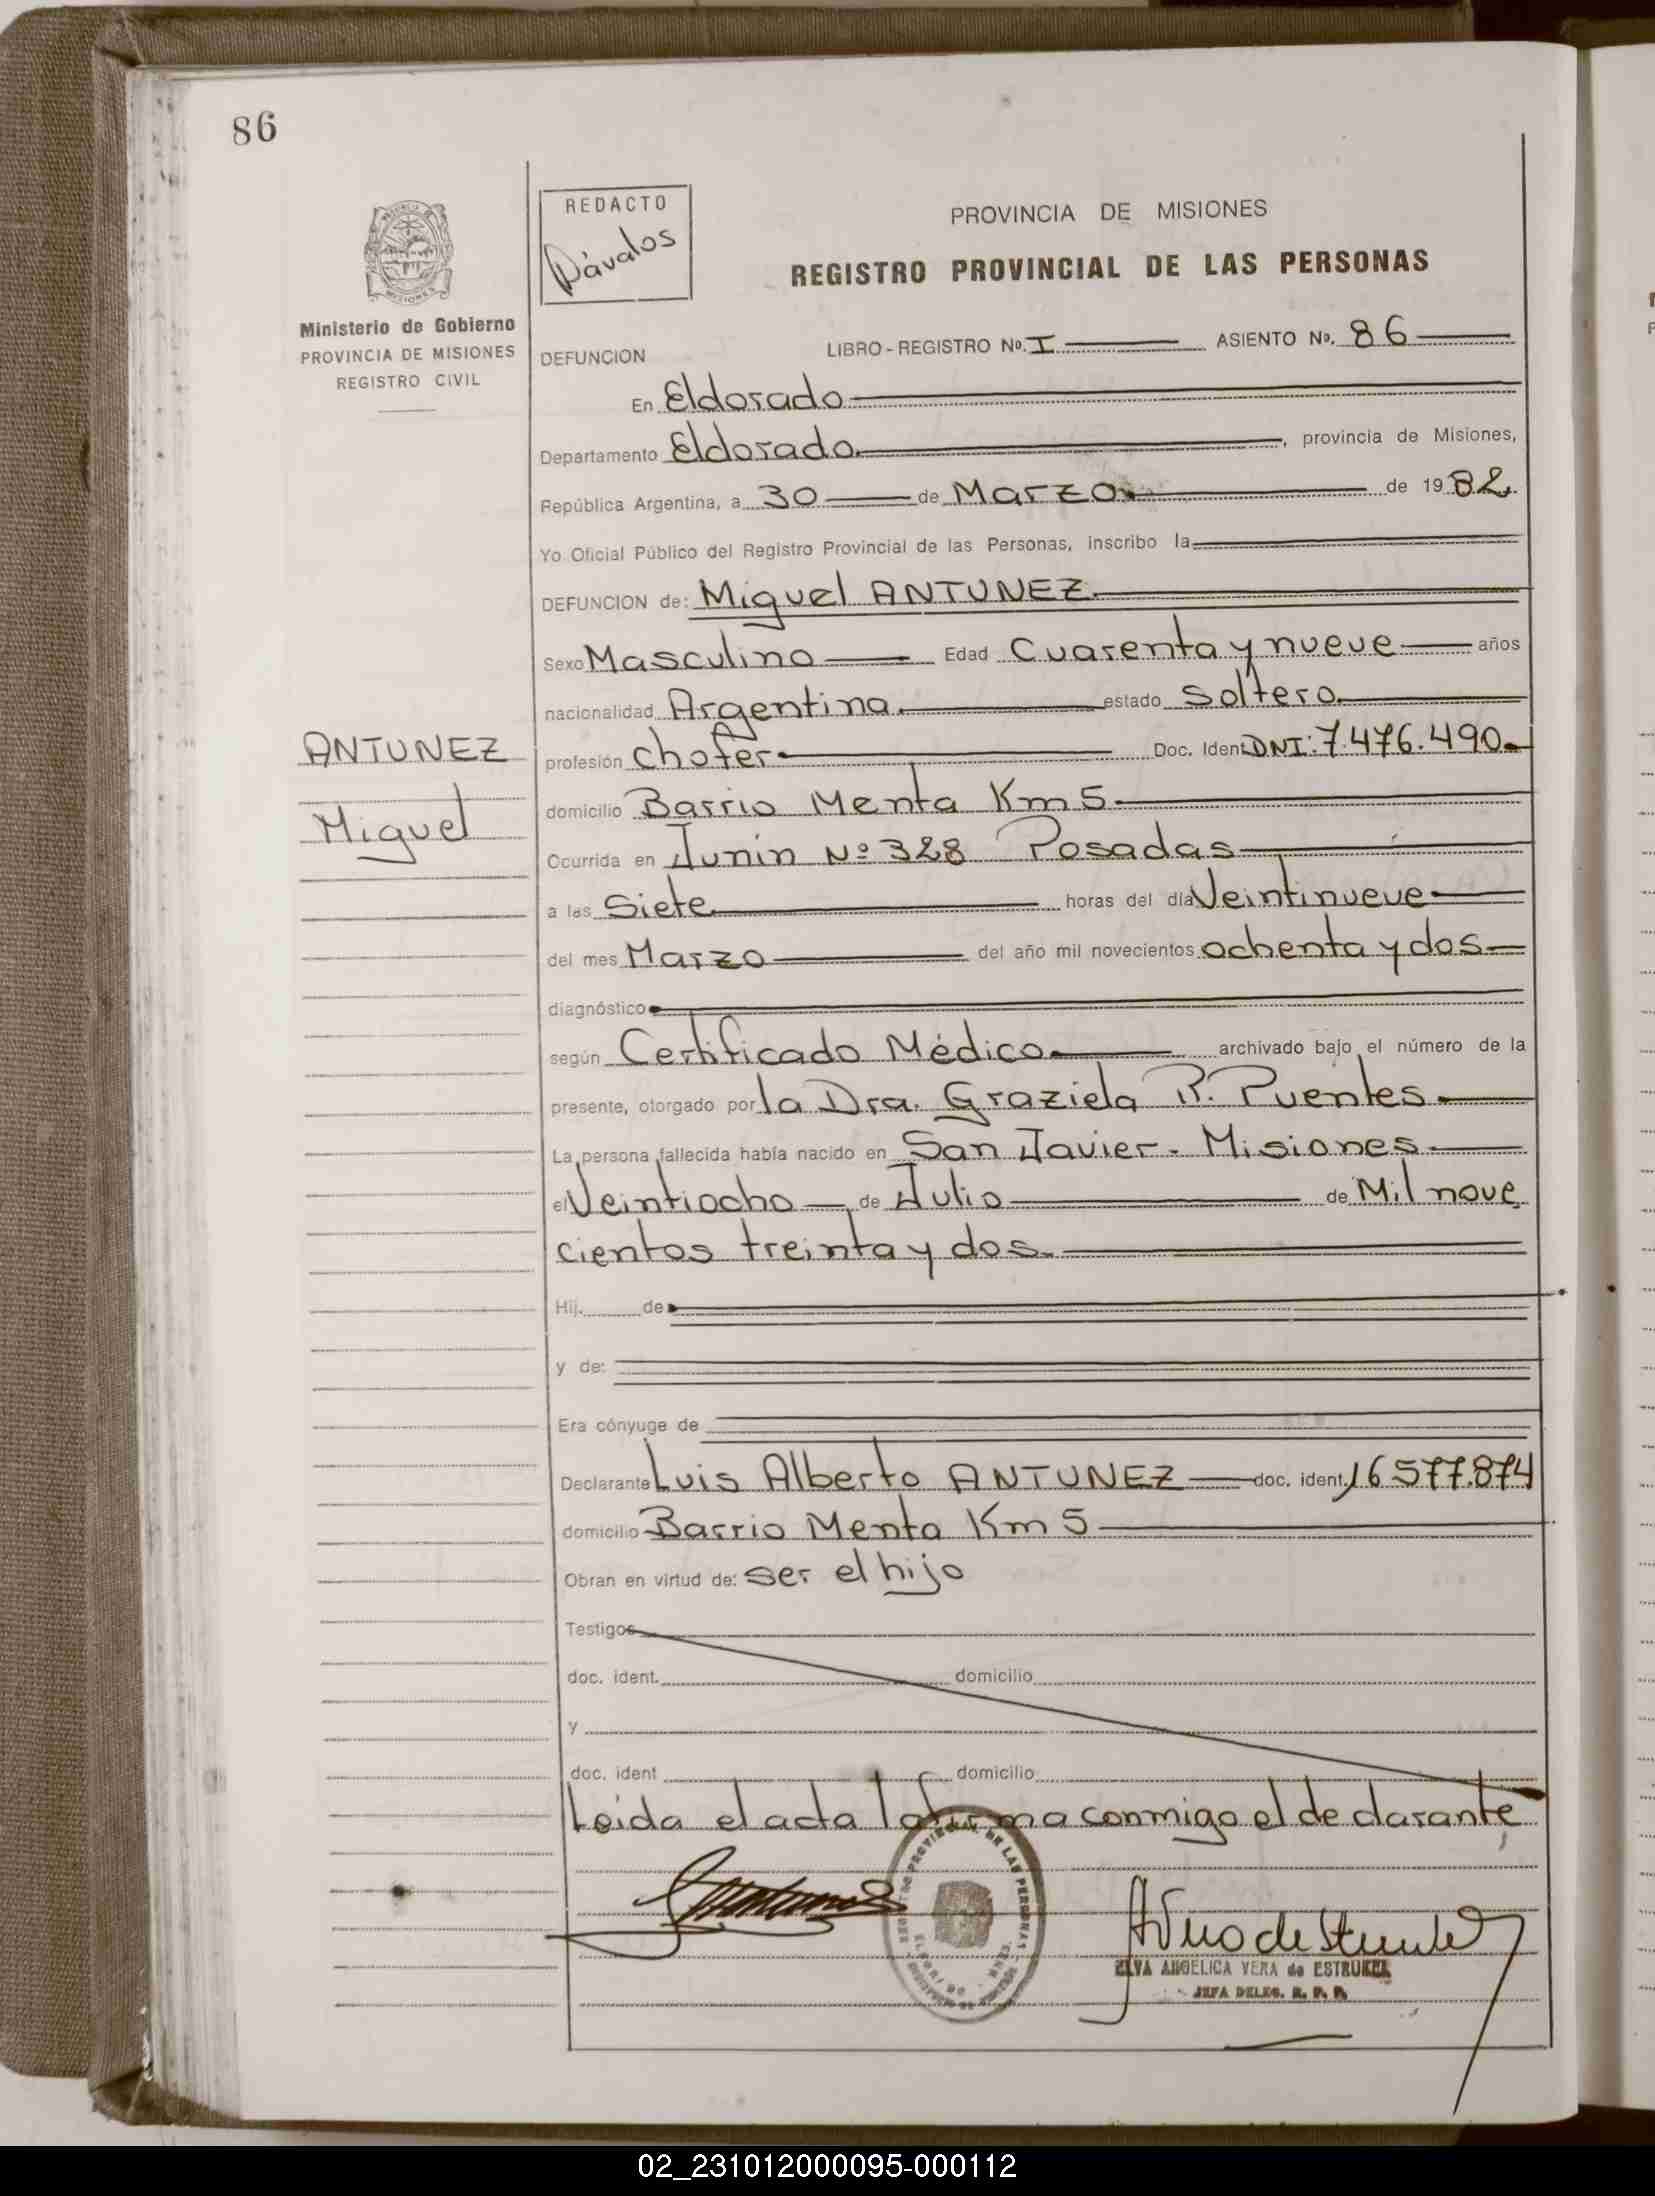 86
REDACTO
Dávalos
PROVINCIA DE MISIONES
REGISTRO PROVINCIAL DE LAS PERSONAS
Ministerio de Gobierno
PROVINCIA DE MISIONES
REGISTRO CIVIL
DEFUNCION LIBRO-REGISTRO Nº. I ASIENTO Nº. 86
En Eldorado
Departamento Eldorado, provincia de Misiones,
República Argentina, a 30 de Marzo de 1982
Yo Oficial Público del Registro Provincial de las Personas, inscribo la
DEFUNCION de: Miguel ANTUNEZ
Sexo Masculino Edad Cuarenta y nueve años
nacionalidad Argentina estado Soltero
ANTUNEZ
Miguel
profesión Chofer Doc. Ident DNI: 7.476.490
domicilio Barrio Menta Km 5
Ocurrida en Junin Nº 328 Posadas
a las Siete horas del día Veintinueve
del mes Marzo del año mil novecientos ochenta y dos
diagnóstico
según Certificado Médico archivado bajo el número de la
presente, otorgado por la Dra. Graziela R. Puentes
La persona fallecida había nacido en San Javier - Misiones
el Veintiocho de Julio de Mil nove
cientos treinta y dos.
Hij. de
y de:
Era cónyuge de
Declarante Luis Alberto ANTUNEZ doc. ident. 16.577.874
domicilio Barrio Menta Km 5
Obran en virtud de: ser el hijo
Testigos
doc. ident. domicilio
y
doc. ident domicilio
Leida el acta la firma conmigo el declarante
ELVA ANGELICA VERA de ESTRUKEL
JEFA DELEG. R. P. P.
02_231012000095-000112